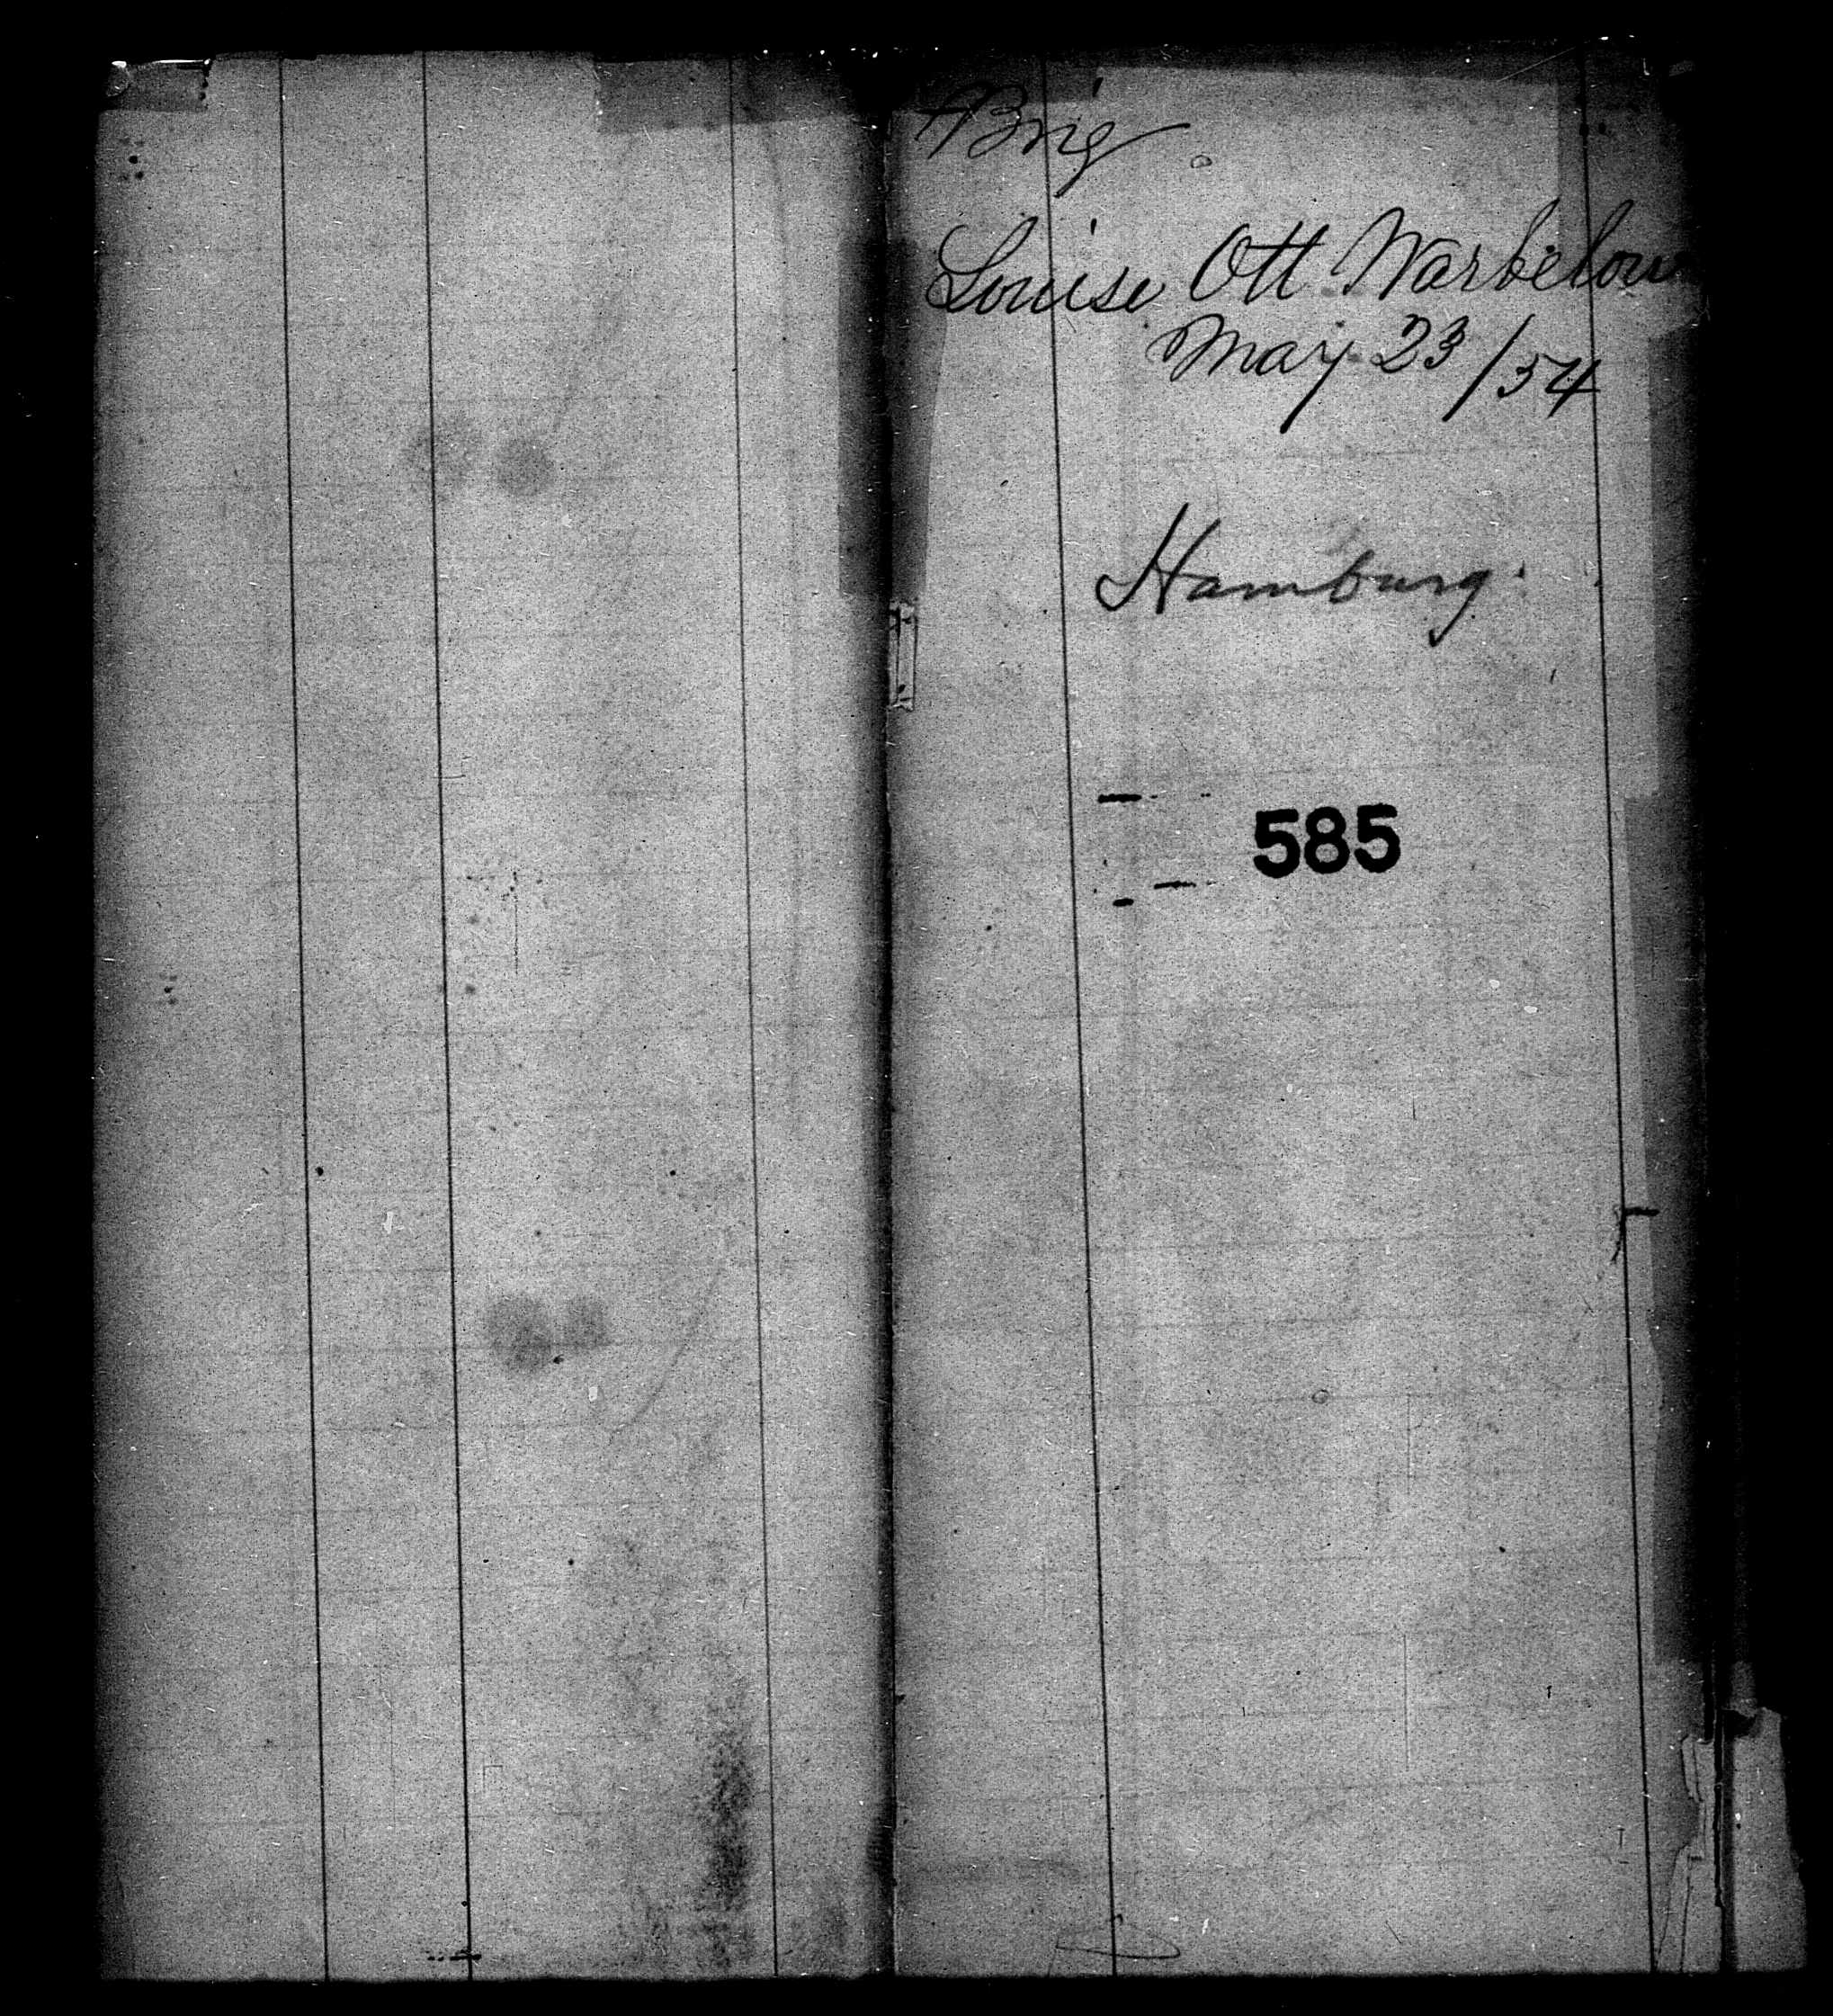 Brig
Louise Ott Warbelow
May 23/54
Hamburg.
585